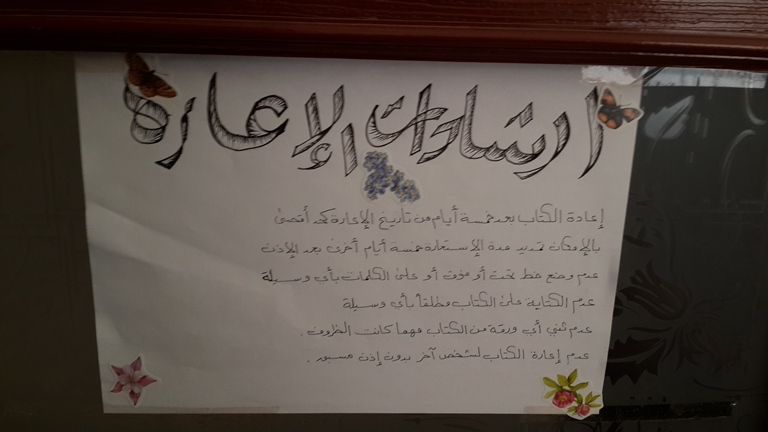 إرشادات الإعارة
إعادة الكتاب بعد خمسة أيام من تاريخ الإعارة كحد أقصى
بالإمكان تمديد مدة الإستعارة خمسة أيام أخرى بعد الإذن
عدم وضع خط تحت أو فوق أو على الكلمات بأي وسيلة
عدم الكتابة على الكتاب مطلقاً بأي وسيلة
عدم ثني أي ورقة من الكتاب مهما كانت الظروف .
عدم إعارة الكتاب لشخص آخر بدون إذن مسبق .